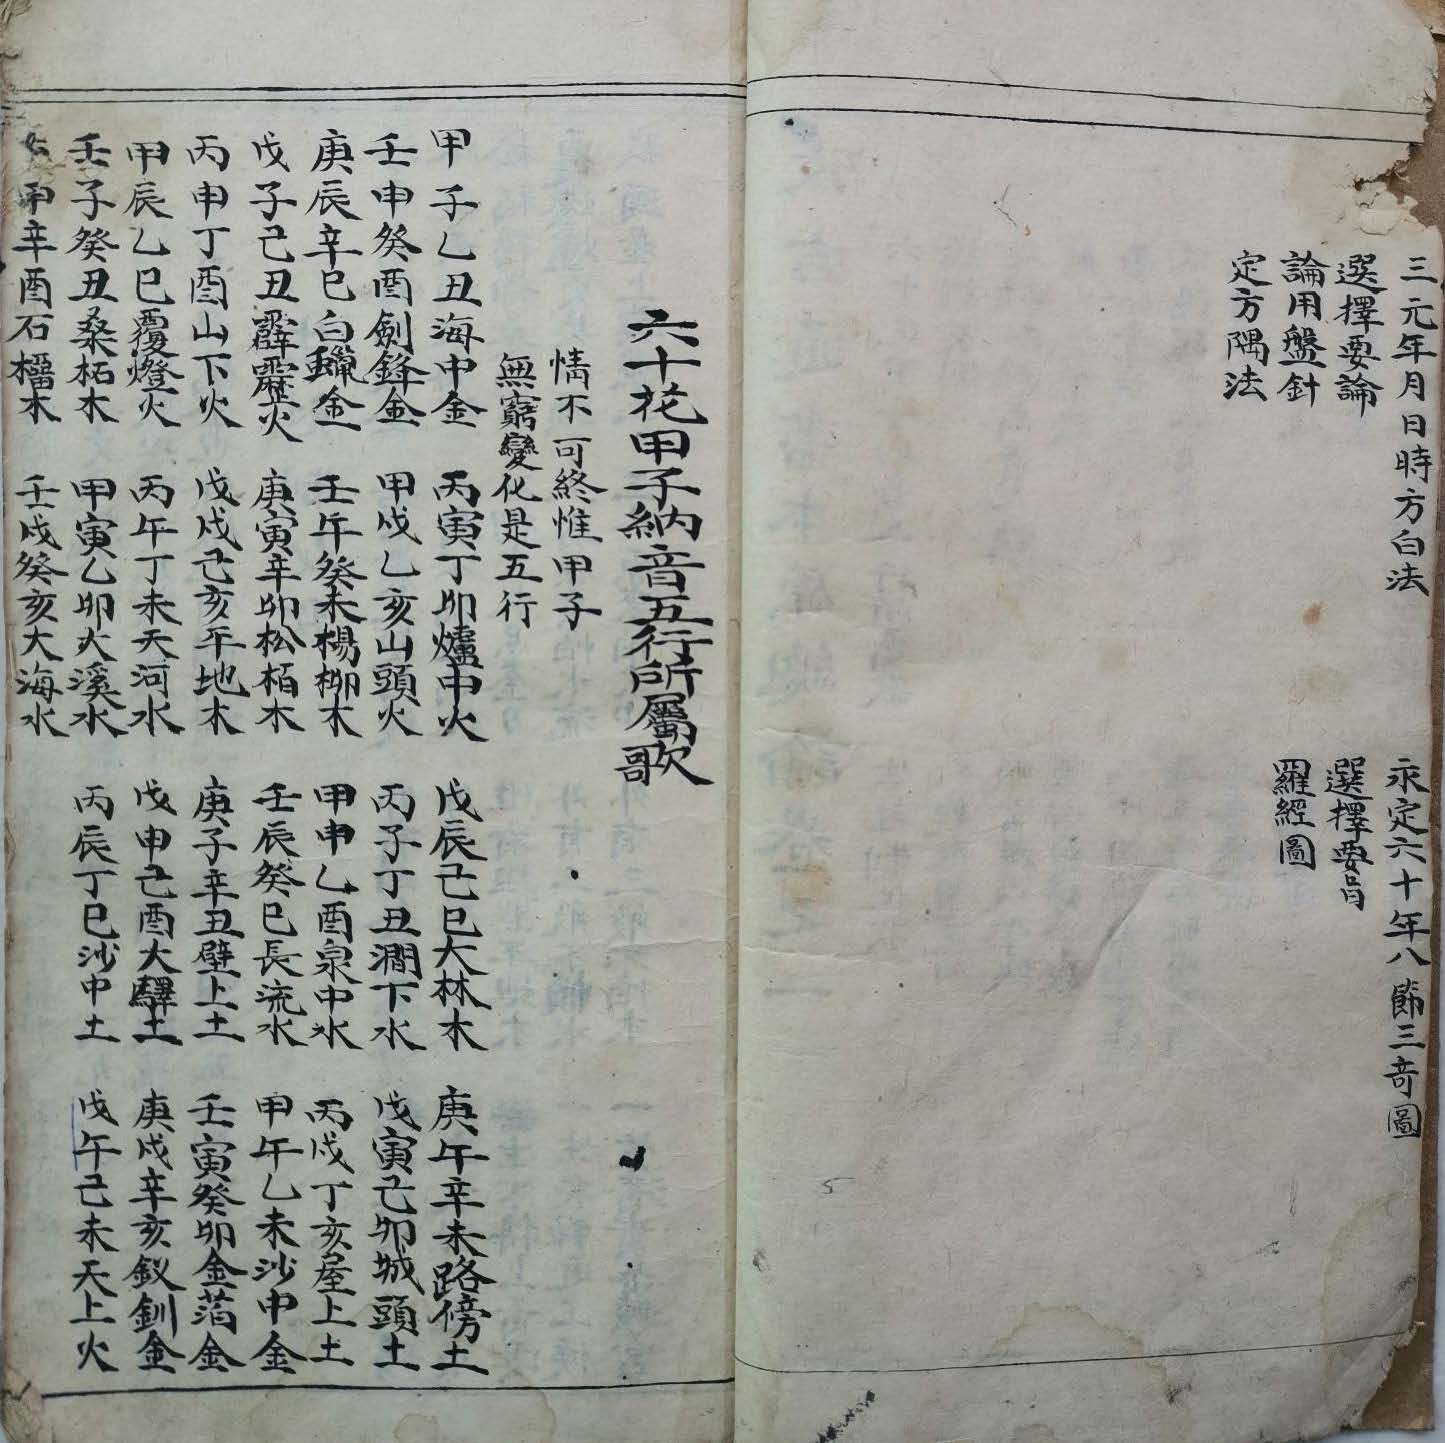 三元年月日時方白法
永定六十年八節三奇圖
選擇要論
選擇要旨
論用盤針
羅經圖
定方隅法
六十花甲子納音五行所屬歌
情不可終惟甲子
無窮變化是五行
甲子乙丑海中金 丙寅丁卯爐中火 戊辰己巳大林木 庚午辛未路傍土
壬申癸酉劍鋒金 甲戌乙亥山頭火 丙子丁丑澗下水 戊寅己卯城頭土
庚辰辛巳白鑞金 壬午癸未楊柳木 甲申乙酉泉中水 丙戌丁亥屋上土
戊子己丑霹靂火 庚寅辛卯松栢木 壬辰癸巳長流水 甲午乙未沙中金
丙申丁酉山下火 戊戌己亥平地木 庚子辛丑壁上土 壬寅癸卯金箔金
甲辰乙巳覆燈火 丙午丁未天河水 戊申己酉大驛土 庚戌辛亥釵釧金
壬子癸丑桑柘木 甲寅乙卯大溪水 丙辰丁巳沙中土 戊午己未天上火
申辛酉石榴木 壬戌癸亥大海水